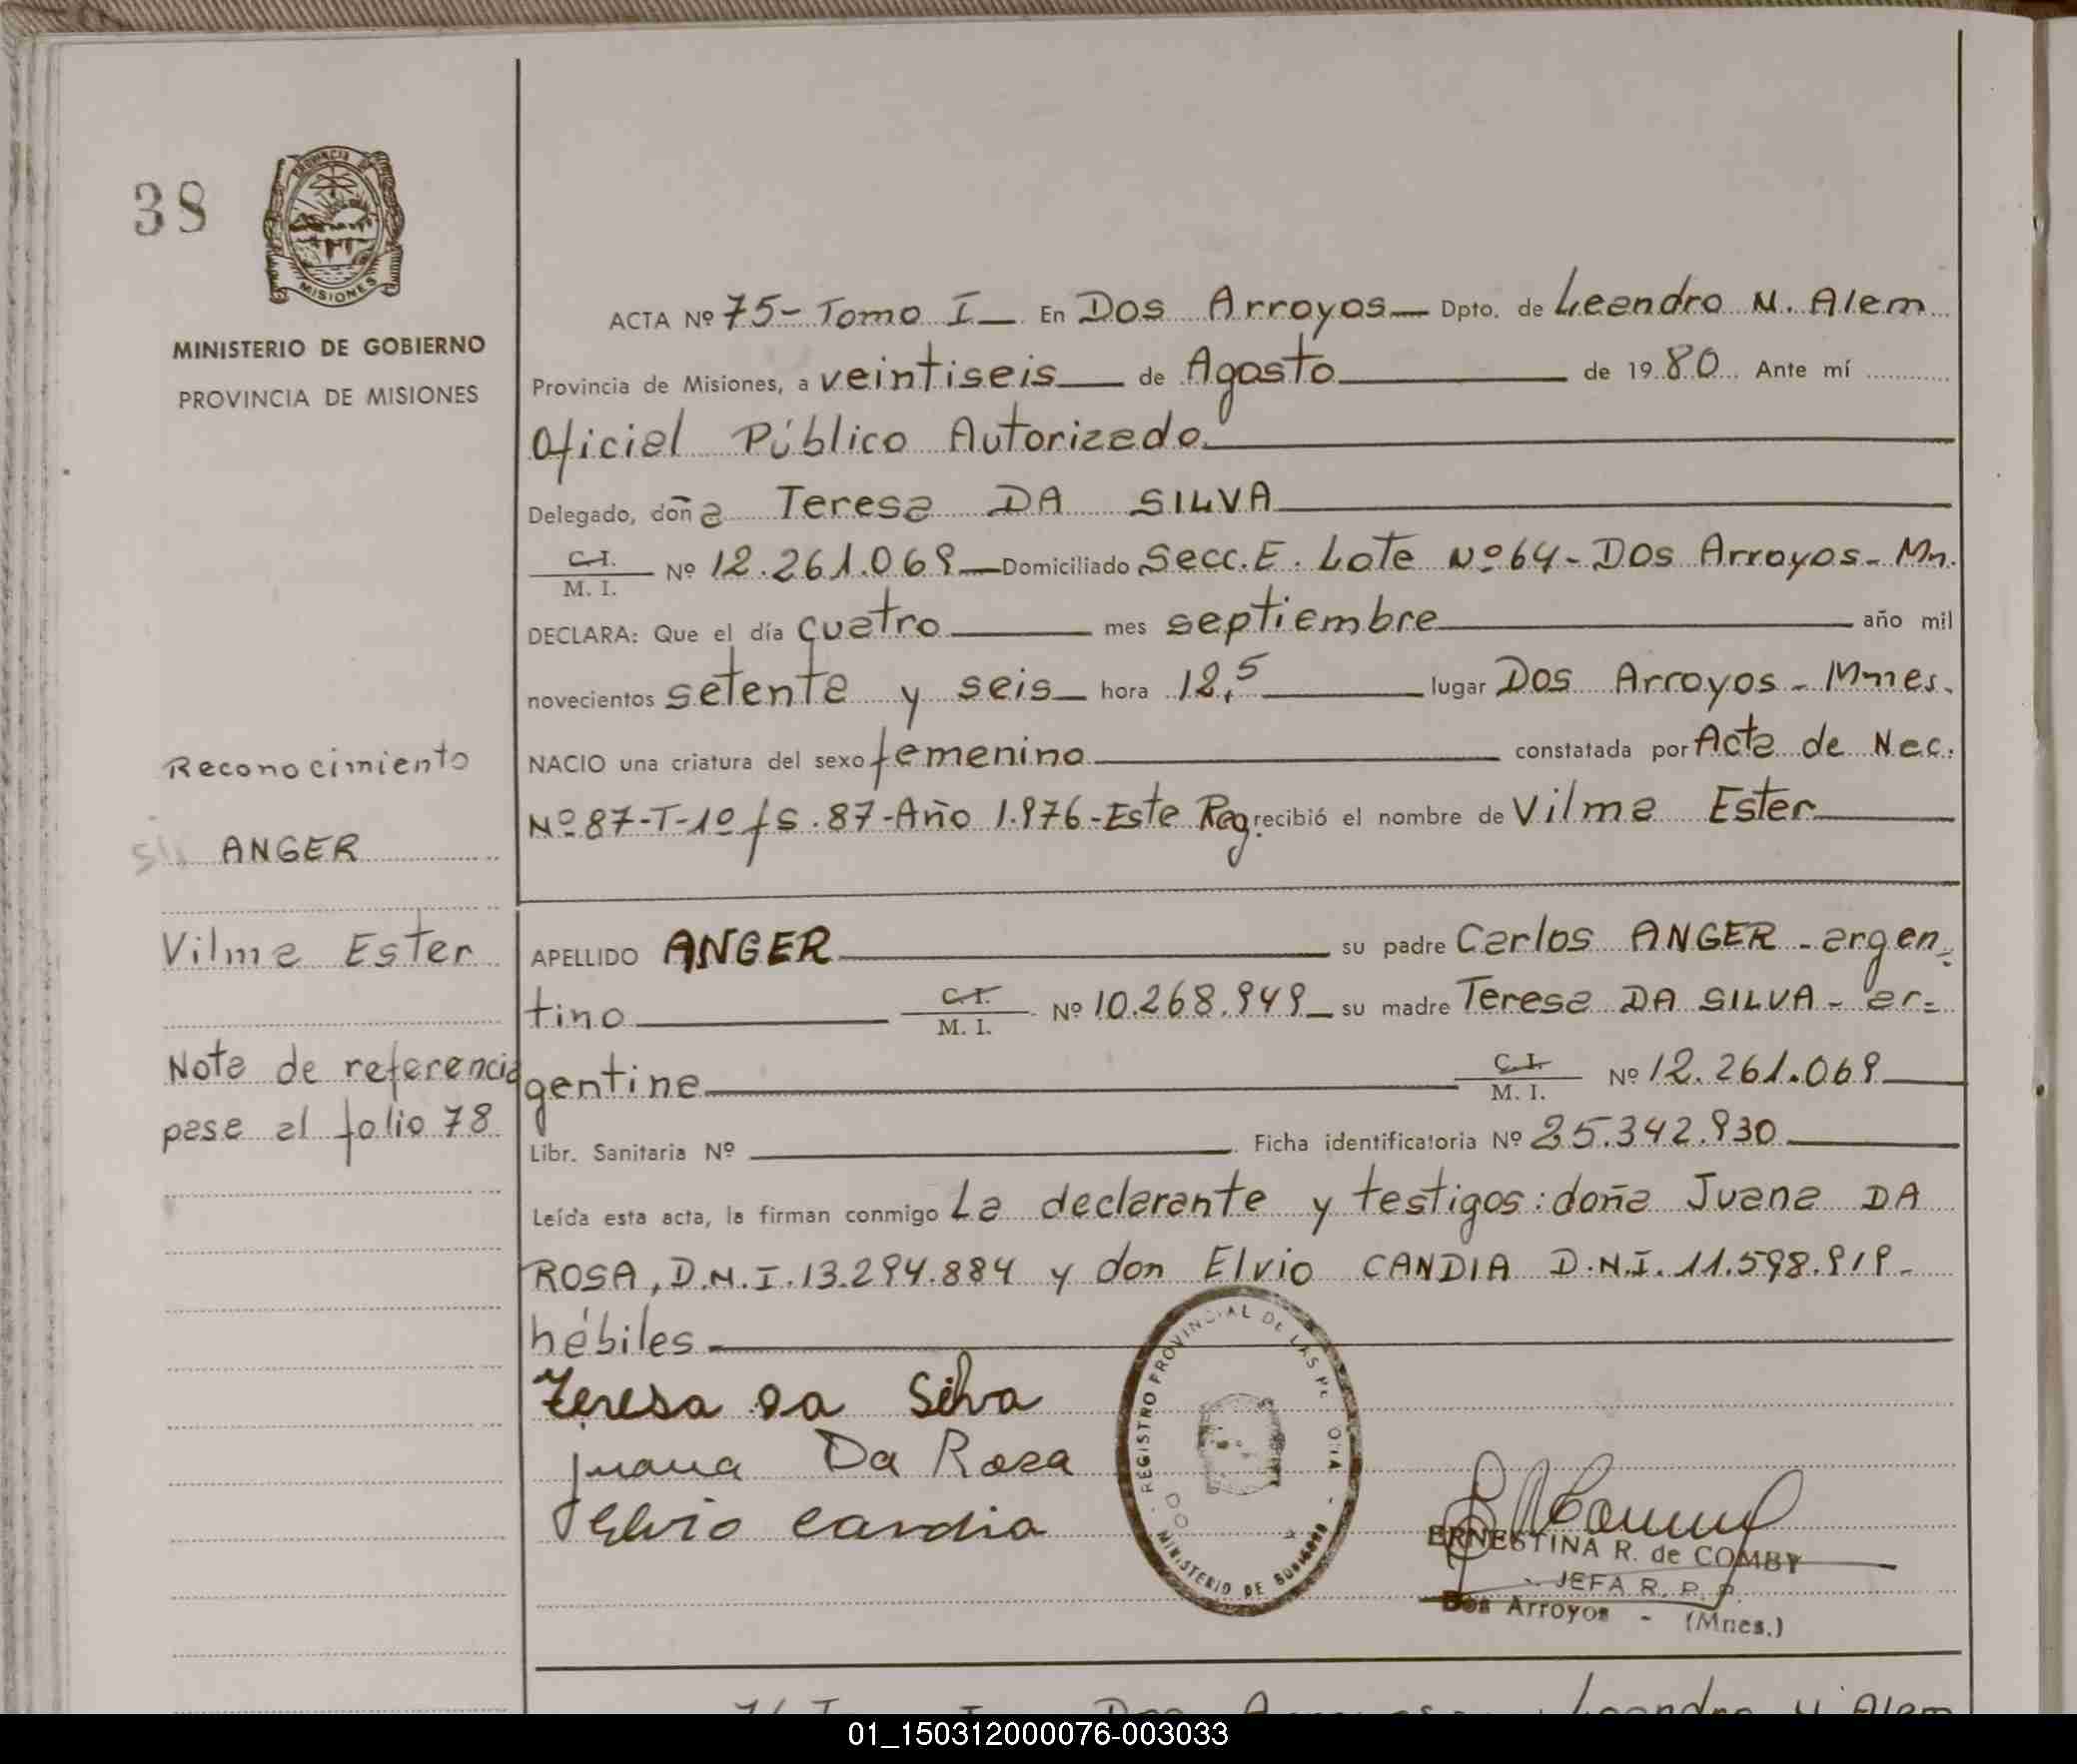 38
PROVINCIA DE
MISIONES
MINISTERIO DE GOBIERNO
PROVINCIA DE MISIONES
ACTA Nº 75 - Tomo I — En Dos Arroyos — Dpto. de Leandro N. Alem
Provincia de Misiones, a veintiseis — de Agosto — de 1980 Ante mí
Oficial Público Autorizado
Delegado, doña Teresa DA SILVA
C.I. / M. I. Nº 12.261.069 — Domiciliado Secc. E. Lote Nº 64 - Dos Arroyos - Mn.
DECLARA: Que el día cuatro — mes septiembre — año mil
novecientos setenta y seis — hora 12,5 — lugar Dos Arroyos - Mnes.
NACIO una criatura del sexo femenino — constatada por Acta de Nac.
Nº 87-T-1º fs. 87 - Año 1.976 - Este Reg. recibió el nombre de Vilma Ester
Reconocimiento
ANGER
Vilma Ester
Nota de referencia
pase al folio 78
APELLIDO ANGER — su padre Carlos ANGER - argen-
tino — C.I. / M. I. Nº 10.268.949 — su madre Teresa DA SILVA - ar-
gentina — C.I. / M. I. Nº 12.261.069
Libr. Sanitaria Nº — Ficha identificatoria Nº 25.342.930
Leída esta acta, la firman conmigo La declarante y testigos: doña Juana DA
ROSA, D.N.I. 13.294.884 y don Elvio CANDIA D.N.I. 11.598.919 -
hábiles
Teresa Da Silva
Juana Da Rosa
Elvio Candia
REGISTRO PROVINCIAL DE LAS
MINISTERIO DE
ERNESTINA R. de COMBY
JEFA R. P. P.
Dos Arroyos - (Mnes.)
01_150312000076-003033